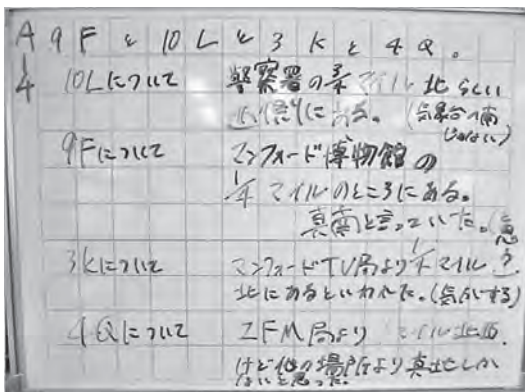 A 9Fと10Lと3Kと4Q。
4 10Lについて 警察署の3/4マイル北らしい
にある。(気象台の南
じゃない)
9Fについて マンフォード博物館の
1/4マイルのところにある。
真南と言っていた。(気
3Kについて マンフォードTV局より1/4マイル
北にあるといわれた。(気がする)
4Qについて ZFM局より マイル北西
けど他の場所より真北しか
ないと思った。